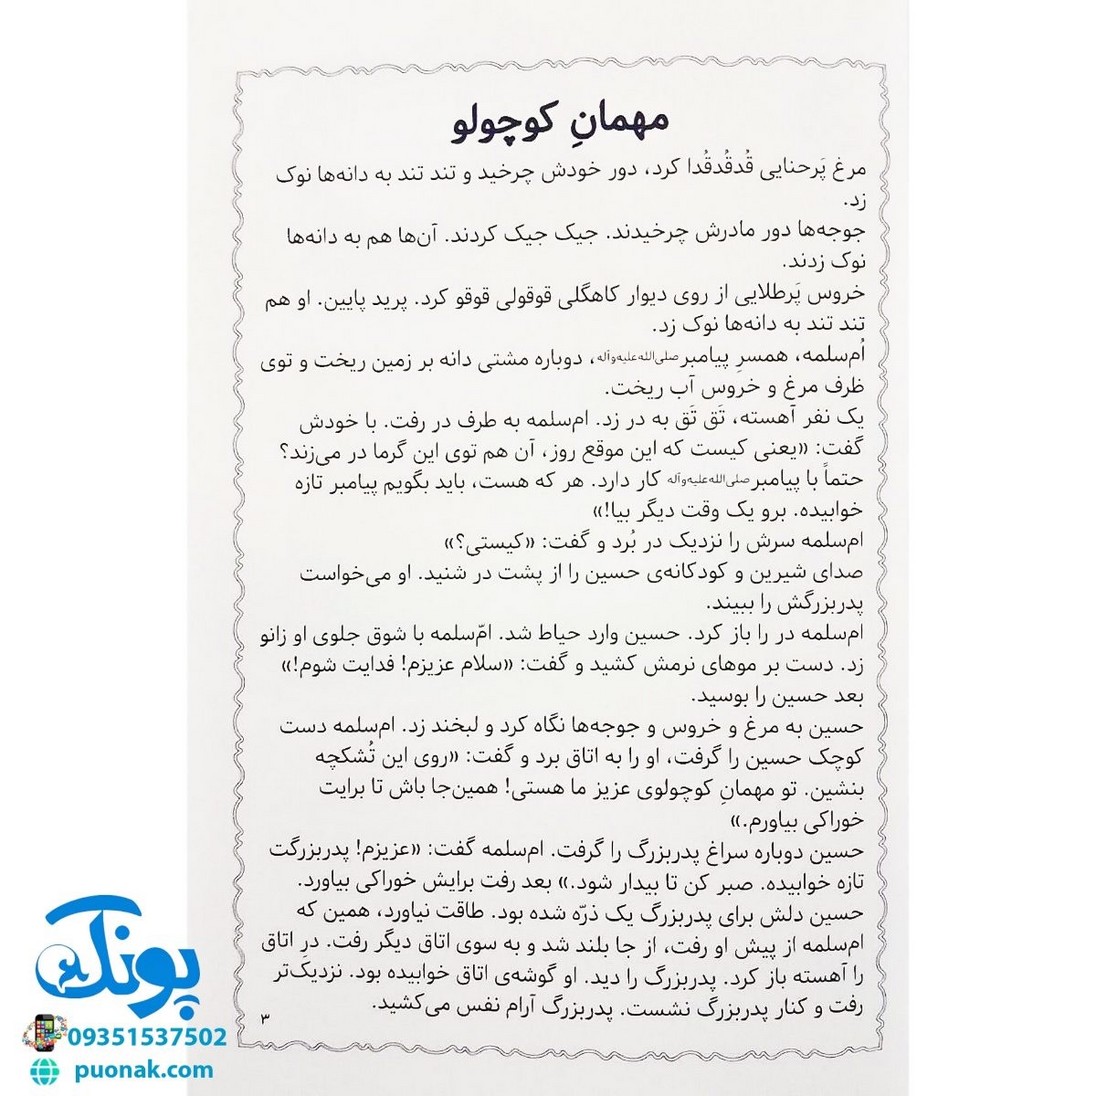 مهمانِ کوچولو
مرغ پَرحنایی قُدقُدقُدا کرد، دور خودش چرخید و تند تند به دانه‌ها نوک
زد.
جوجه‌ها دور مادرش چرخیدند. جیک جیک کردند. آن‌ها هم به دانه‌ها
نوک زدند.
خروس پَرطلایی از روی دیوار کاهگلی قوقولی قوقو کرد. پرید پایین. او هم
تند تند به دانه‌ها نوک زد.
اُم‌سلمه، همسرِ پیامبر صلی‌الله‌علیه‌وآله، دوباره مشتی دانه بر زمین ریخت و توی
ظرف مرغ و خروس آب ریخت.
یک نفر آهسته، تَق تَق به در زد. ام‌سلمه به طرف در رفت. با خودش
گفت: «یعنی کیست که این موقع روز، آن هم توی این گرما در می‌زند؟
حتماً با پیامبر صلی‌الله‌علیه‌وآله کار دارد. هر که هست، باید بگویم پیامبر تازه
خوابیده. برو یک وقت دیگر بیا!»
ام‌سلمه سرش را نزدیک در بُرد و گفت: «کیستی؟»
صدای شیرین و کودکانه‌ی حسین را از پشت در شنید. او می‌خواست
پدربزرگش را ببیند.
ام‌سلمه در را باز کرد. حسین وارد حیاط شد. امّ‌سلمه با شوق جلوی او زانو
زد. دست بر موهای نرمش کشید و گفت: «سلام عزیزم! فدایت شوم!»
بعد حسین را بوسید.
حسین به مرغ و خروس و جوجه‌ها نگاه کرد و لبخند زد. ام‌سلمه دست
کوچک حسین را گرفت، او را به اتاق برد و گفت: «روی این تُشکچه
بنشین. تو مهمانِ کوچولوی عزیز ما هستی! همین‌جا باش تا برایت
خوراکی بیاورم.»
حسین دوباره سراغ پدربزرگ را گرفت. ام‌سلمه گفت: «عزیزم! پدربزرگت
تازه خوابیده. صبر کن تا بیدار شود.» بعد رفت برایش خوراکی بیاورد.
حسین دلش برای پدربزرگ یک ذرّه شده بود. طاقت نیاورد، همین که
ام‌سلمه از پیش او رفت، از جا بلند شد و به سوی اتاق دیگر رفت. درِ اتاق
را آهسته باز کرد. پدربزرگ را دید. او گوشه‌ی اتاق خوابیده بود. نزدیک‌تر
رفت و کنار پدربزرگ نشست. پدربزرگ آرام نفس می‌کشید.
۳
پونک
09351537502
puonak.com